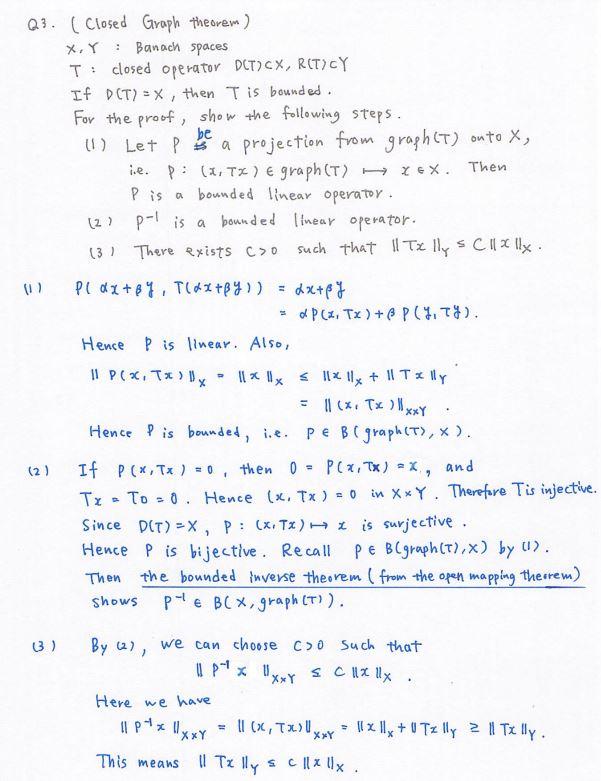 Q3. (Closed Graph theorem)
X, Y : Banach spaces
T : closed operator D(T)⊂X, R(T)⊂Y
If D(T) = X, then T is bounded.
For the proof, show the following steps.
(1) Let P be a projection from graph(T) onto X,
i.e. P : (x, Tx) ∈ graph(T) ⟼ x ∈ X. Then
P is a bounded linear operator.
(2) P⁻¹ is a bounded linear operator.
(3) There exists C>0 such that ‖Tx‖_Y ≤ C‖x‖_X.
(1) P(αx+βy, T(αx+βy)) = αx+βy
= αP(x,Tx)+βP(y,Ty).
Hence P is linear. Also,
‖P(x,Tx)‖_X = ‖x‖_X ≤ ‖x‖_X + ‖Tx‖_Y
= ‖(x,Tx)‖_{X×Y}.
Hence P is bounded, i.e. P ∈ B(graph(T), X).
(2) If P(x,Tx) = 0, then 0 = P(x,Tx) = x, and
Tx = T0 = 0. Hence (x,Tx) = 0 in X×Y. Therefore T is injective.
Since D(T) = X, P : (x,Tx) ⟼ x is surjective.
Hence P is bijective. Recall P ∈ B(graph(T),X) by (1).
Then the bounded inverse theorem (from the open mapping theorem)
shows P⁻¹ ∈ B(X, graph(T)).
(3) By (2), we can choose C>0 such that
‖P⁻¹x‖_{X×Y} ≤ C‖x‖_X.
Here we have
‖P⁻¹x‖_{X×Y} = ‖(x,Tx)‖_{X×Y} = ‖x‖_X + ‖Tx‖_Y ≥ ‖Tx‖_Y.
This means ‖Tx‖_Y ≤ C‖x‖_X.